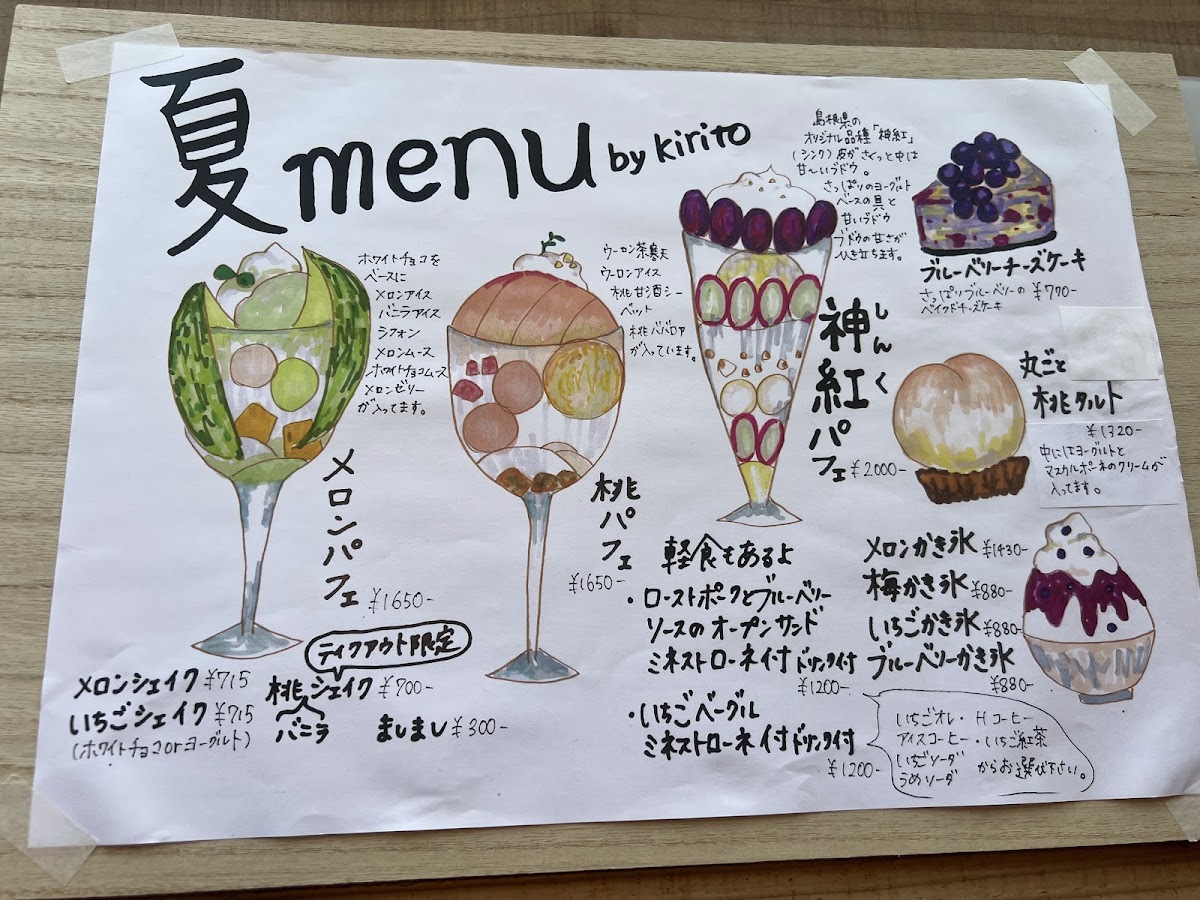 夏menu by kirito
ホワイトチョコを
ベースに
メロンアイス
バニラアイス
シフォン
メロンムース
ホワイトチョコムース
メロンゼリー
が入ってます。
メロンパフェ
¥1650-
ウーロン茶寒天
ウーロンアイス
桃甘酒シー
ベット
桃ババロア
が入っています。
桃パフェ
¥1650-
島根県の
オリジナル品種「神紅」
(シンク)皮がさくっと中は
甘〜いブドウ。
さっぱりのヨーグルト
ベースの具と
甘いブドウ
ブドウの甘さが
ひき立ちます。
しんく
神紅パフェ
¥2000-
ブルーベリーチーズケーキ
さっぱりブルーベリーの ¥770-
ベイクドチーズケーキ
丸ごと
桃タルト
¥1320-
中にはヨーグルトと
マスカルポーネのクリームが
入ってます。
メロンシェイク ¥715
いちごシェイク ¥715
(ホワイトチョコorヨーグルト)
テイクアウト限定
桃シェイク ¥700-
バニラ ましまし ¥300-
軽食もあるよ
・ローストポークとブルーベリー
ソースのオープンサンド
ミネストローネ付ドリンク付
¥1200-
・いちごベーグル
ミネストローネ付ドリンク付
¥1200-
メロンかき氷 ¥1430-
梅かき氷 ¥880-
いちごかき氷 ¥880-
ブルーベリーかき氷
¥880-
いちごオレ・Hコーヒー
アイスコーヒー・いちご紅茶
いちごソーダ
うめソーダ からお選び下さい。